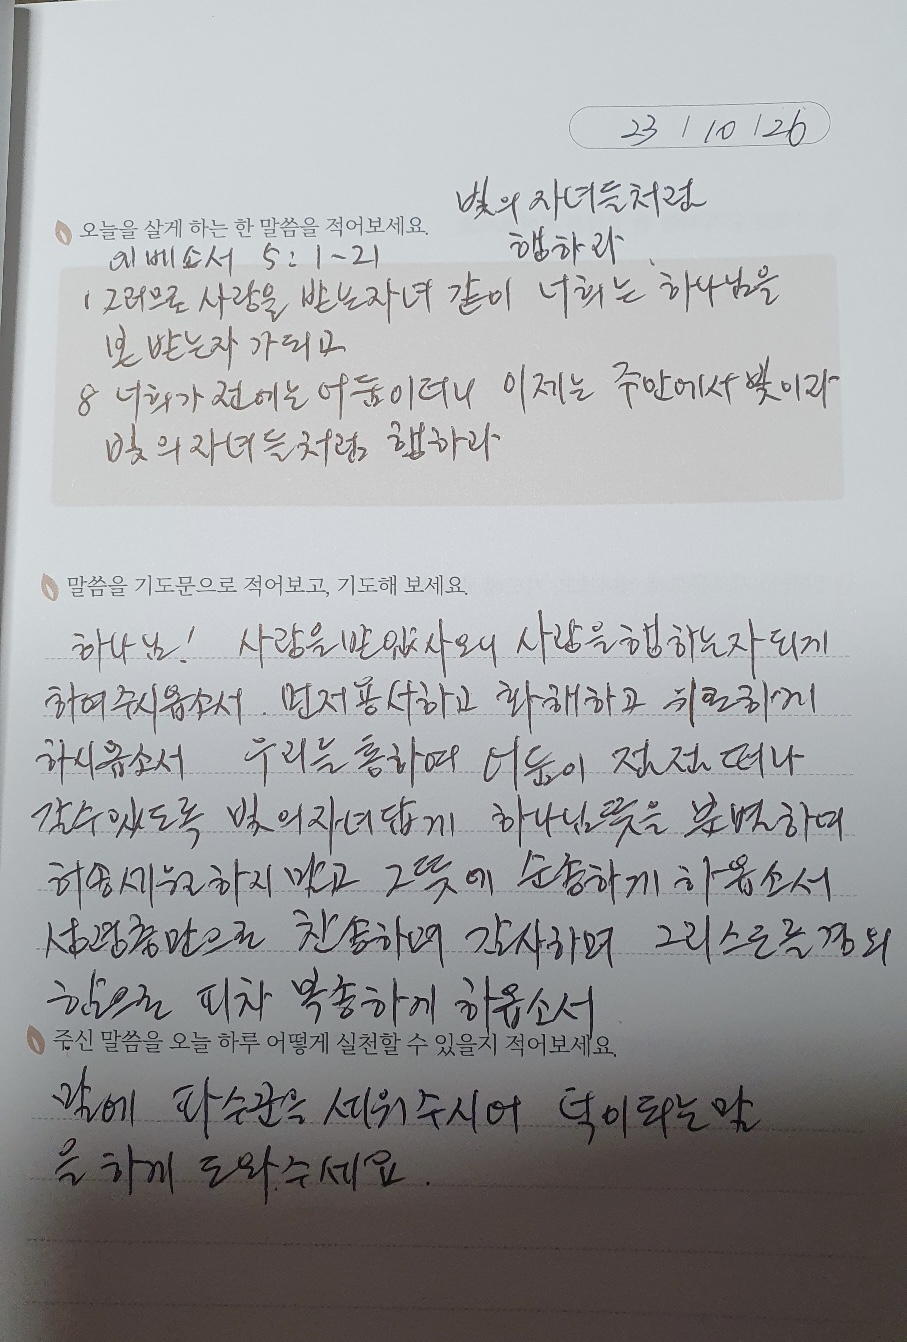 23 / 10 / 26
빛의 자녀들처럼
오늘을 살게 하는 한 말씀을 적어보세요.
행하라
에베소서 5:1~21
1 그러므로 사랑을 받는자녀 같이 너희는 하나님을
본 받는자 가되고
8 너희가 전에는 어둠이더니 이제는 주안에서 빛이라
빛의 자녀들처럼 행하라
말씀을 기도문으로 적어보고, 기도해 보세요.
하나님! 사랑을 받았사오니 사랑을 행하는자 되게
하여주시옵소서. 먼저 용서하고 화해하고 위로하게
하시옵소서 우리를 통하여 어둠이 점점 떠나
갈수있도록 빛의자녀답게 하나님뜻을 분별하며
허송세월하지 말고 그뜻에 순종하게 하옵소서
성령충만으로 찬송하며 감사하며 그리스도를 경외
함으로 피차 복종하게 하옵소서
주신 말씀을 오늘 하루 어떻게 실천할 수 있을지 적어보세요.
말에 파수꾼을 세워주시어 덕이되는말
을 하게 도와주세요.